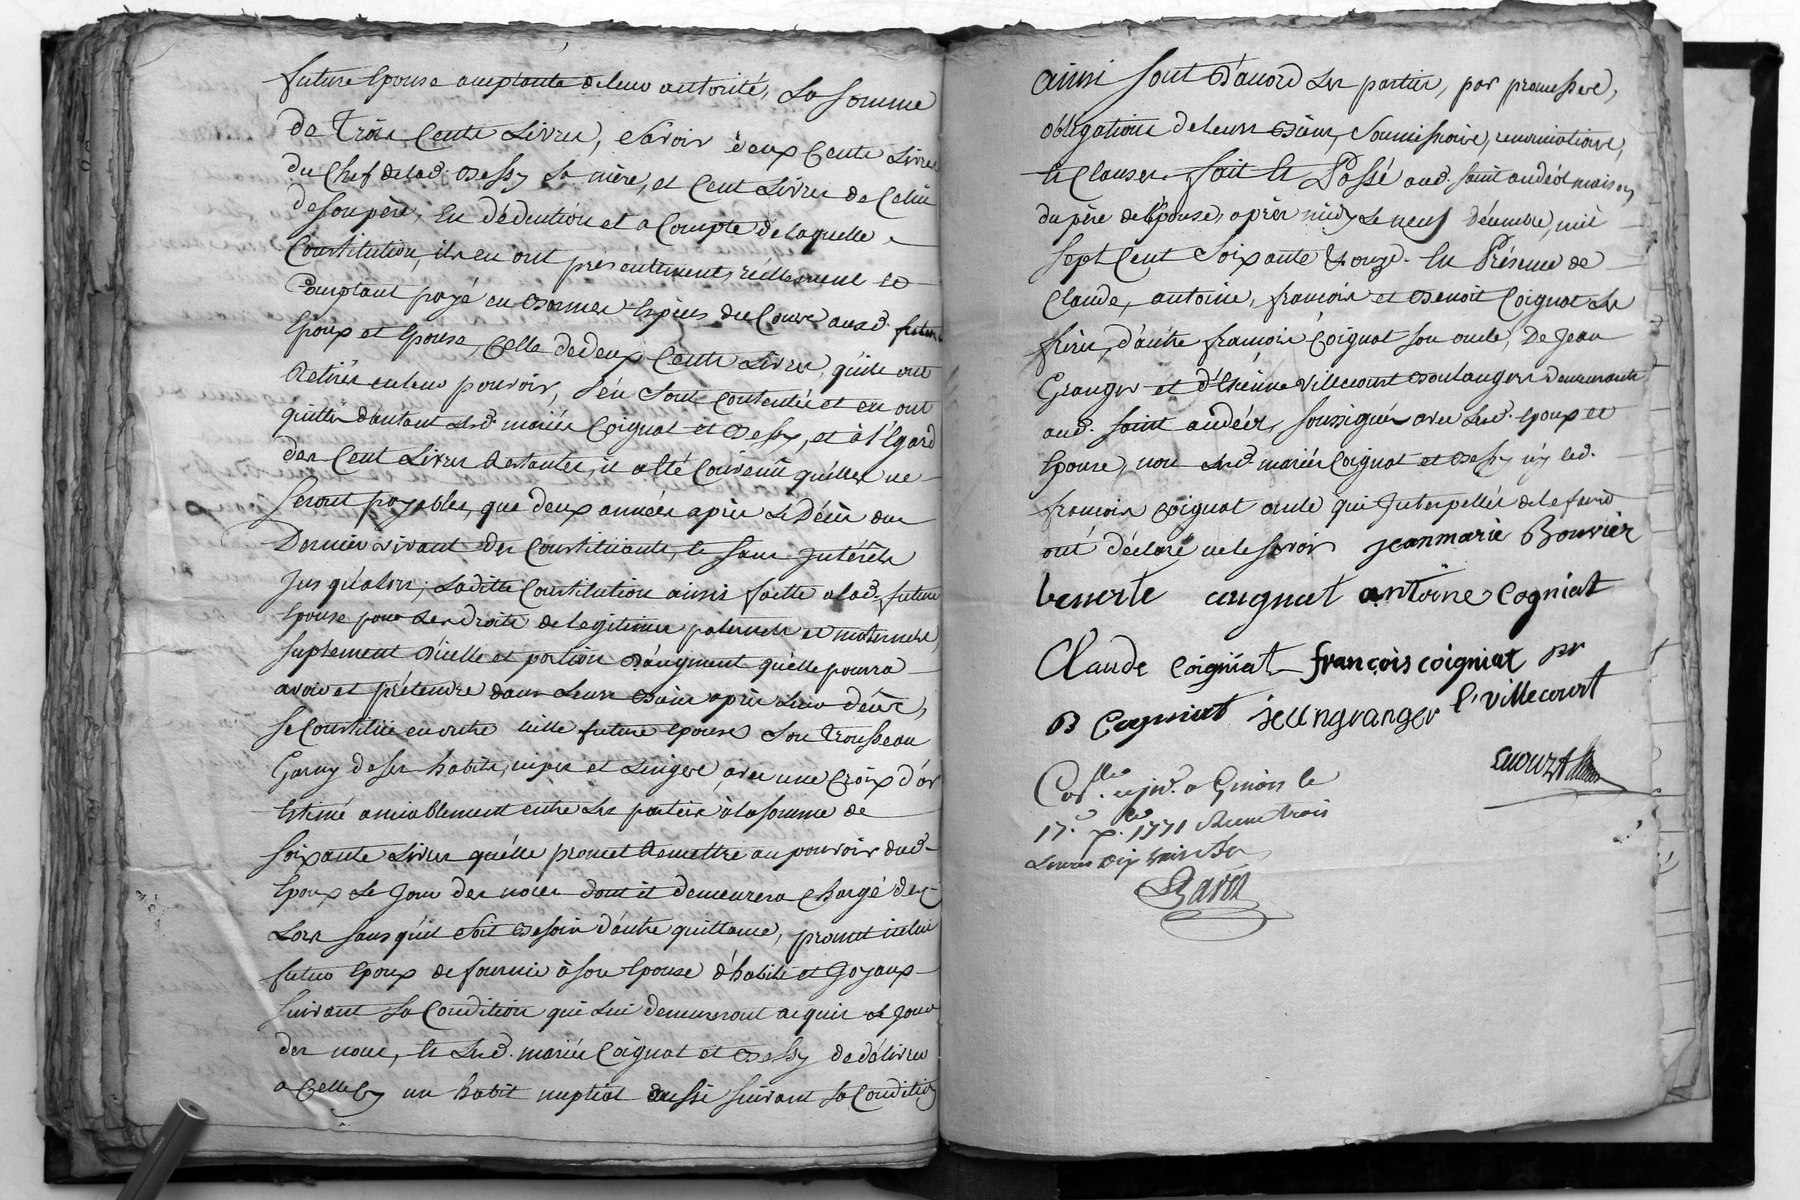 future Epouse acceptante de leur authorité, La somme
De Trois Cents Livres, sçavoir deux Cents Livres
du Chef de lad. Bessy La mère, et Cent Livres de Celui
de son père, En déduction et a Compte de laquelle
Constitution, ils en ont présentement, réellement et
Comptant payé en bonnes Espèces du Cours auxd. futurs
Epoux et Epouse, Celle de deux Cents Livres, qu'ils ont
Retirés en leur pouvoir, s'en sont Contentés et en ont
quittés d'autant Lesd. mariés Coignat et Bessy, et à l'Egard
des Cent Livres Restantes, il a Eté Convenû qu'elles ne
Seront payables, que deux années après Le Décès du
Dernier vivant des Constituants, Et sans Intérêts
Jusqu'alors, Laditte Constitution ainsi faitte a lad. future
Epouse pour Les droits de Legitimes paternels et maternels,
suplement d'icelle et portion d'augment qu'elle pourra
avoir et prétendre dans Leurs Biens après Leur décès,
se Constitüe en outre icelle future Epouse Son Trousseau
Garny de ses habits, nipes et Lingere, avec une Croix d'or
Estimé amiablement entre Les parties à la somme de
soixante Livres qu'elle promet Remettre au pouvoir dud.
Epoux Le Jour des noces dont il demeurera Chargé des
Lors sans qu'il soit Besoin d'autre quittance, promet icelui
futur Epoux de fournir à son Epouse d'habits et Joyaux
suivant sa Condition qui Lui demeureront acquis Le Jour
des noces, Et Lesd. mariés Coignat et Bessy de délivrer
a Celle Cy un habit nuptial aussi suivant sa Condition
ainsi sont D'acord Les parties, par promesses,
obligations de leurs Biens, soumissions, renonciations,
et Clauses. fait et Passé aud. saint andéol maison
du père de l'Epouse, après midy Le neuf décembre, mil
sept Cent soixante et onze. En Présence de
Claude, antoine, françois et Benoit Coignat Ses
frères, d'autre françois Coignat son oncle, De Jean
Granger et d'Etienne Villecourt Boulangers demeurants
aud. saint andéol, soussignés avec Lesd. Epoux et
Epouse, non Lesd. mariés Coignat et Bessy n'y led.
françois Coignat oncle qui Interpellés de le faire
ont déclaré ne le savoir jeanmarie Bouvier
benoite cougnat antoine Cogniat
Claude Coigniat françois coigniat
B Cogniat jeangranger E Villecourt
Con.llé et in.é a Givors le
17.e x.bre 1771 Receu trois
Livres dix huit sols